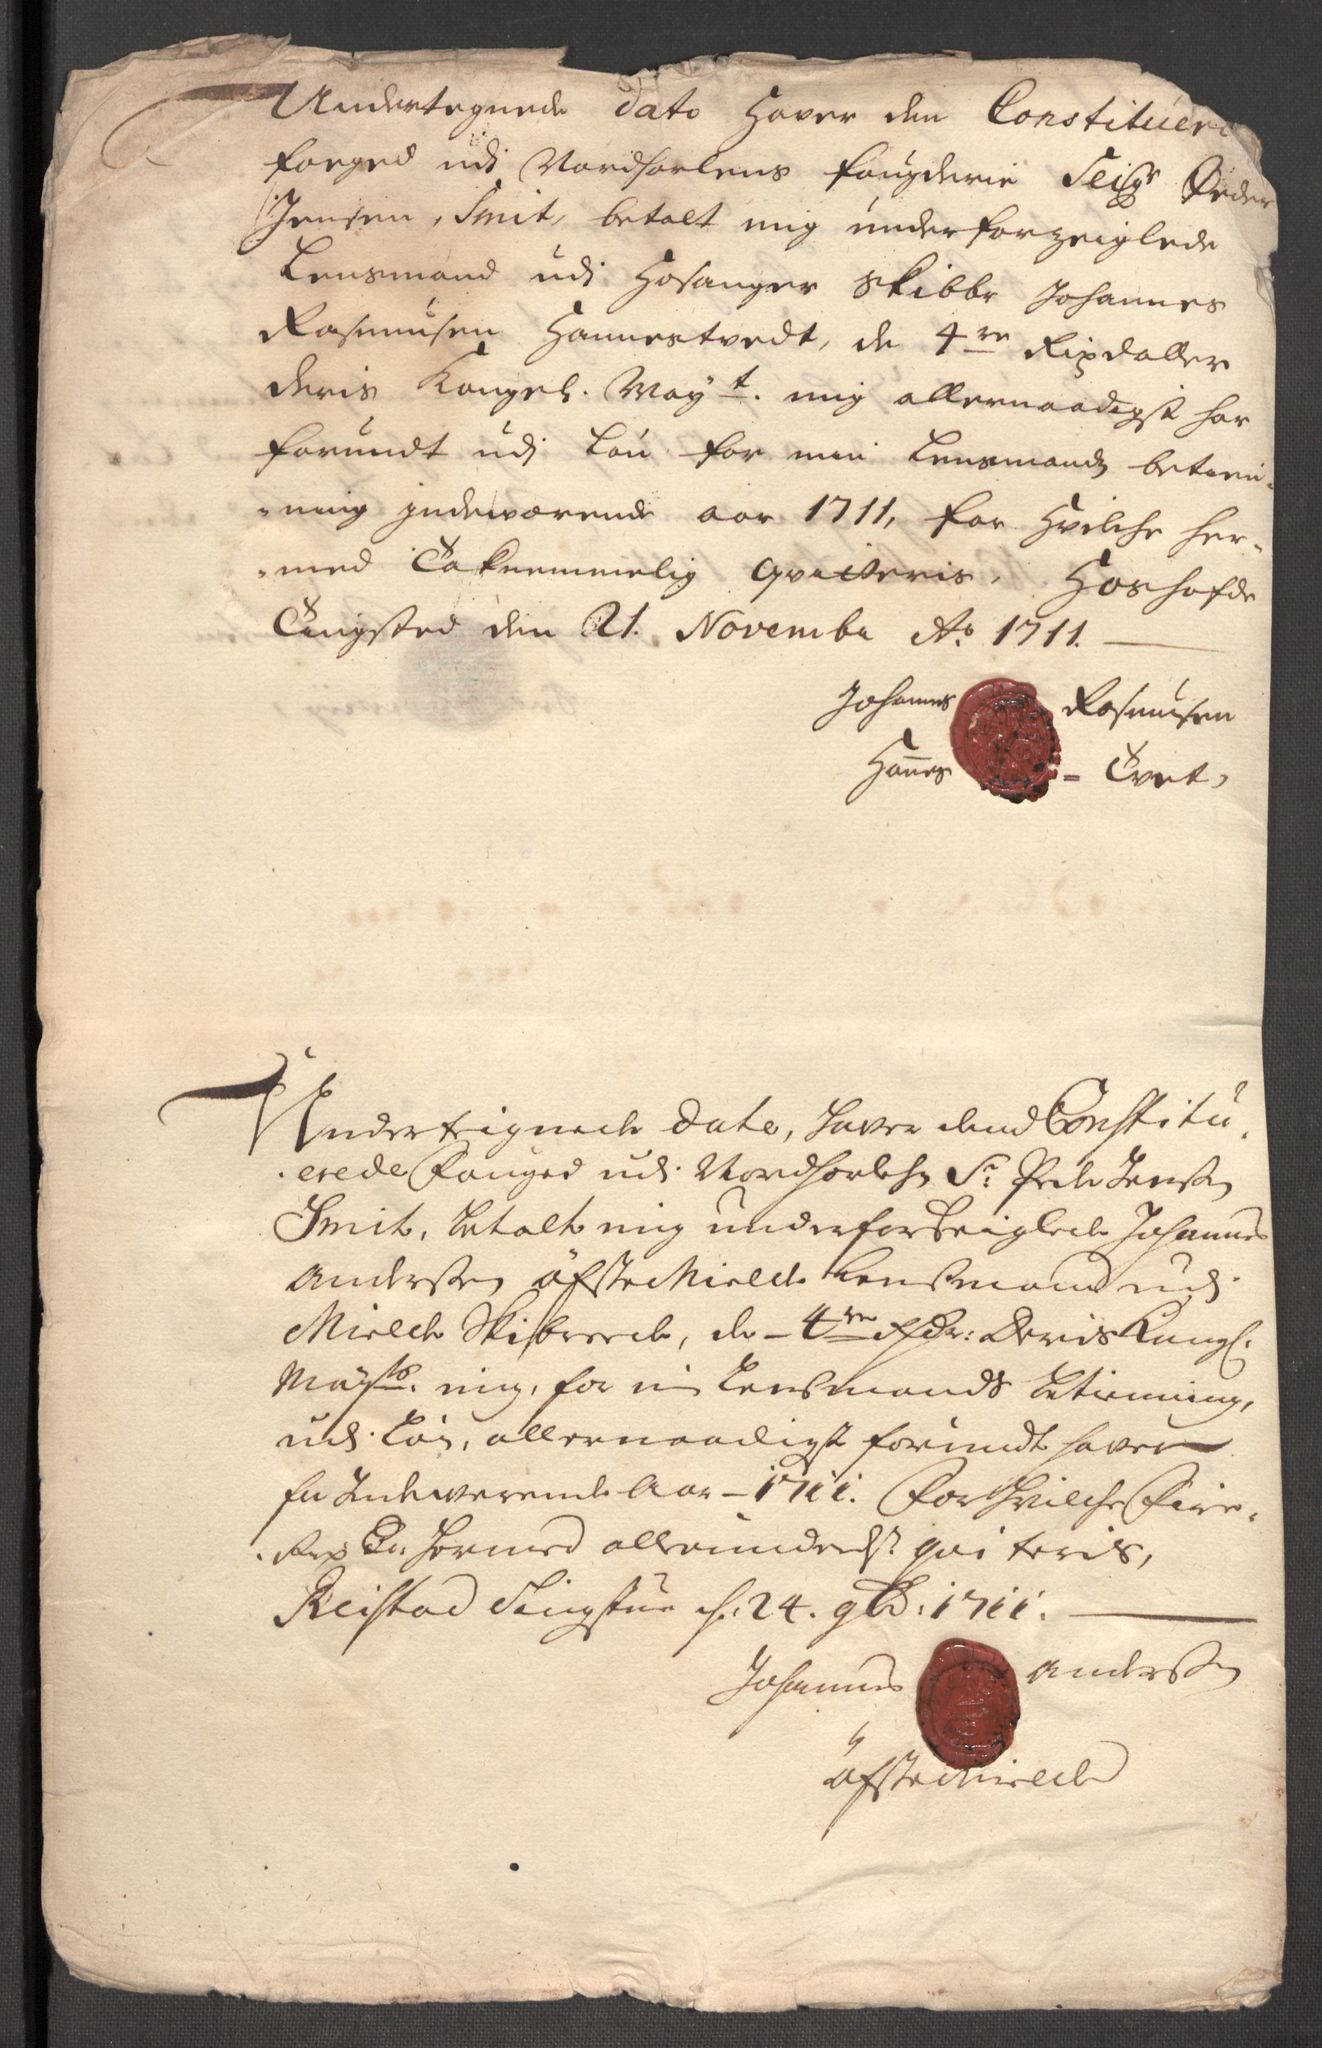 Undertegnede dato Haver den Constituere
foeged udi Nordhorlens fougderie Seigr Peder
Jensen, Smit, betalt mig underforzeiglede
Lensmand udi Hosanger Skibbr Johannes
Rasmusen Hannestvedt, de 4re Rixdaller
deris Kongel. Mayt. mig allernaadigst har
forundt udj Løn for min Lensmands betien-
-ning indeværende aar 1711, for Hvilche her-
-med Taknemmelig qviteris, Hoshofde
Tingsted den 21. Novembr Ao 1711.
Johannes Rasmusen
Hannes - Tvet,
Undertegnede dato, haver dend Constitu-
-erede Fouged udi Nordhorlehn Sr Peder Jenssen
Smit, betalt mig underforseiglede Johannes
Anderssen Øfste Mielde Lensmand udi
Mielde Skibrede, de - 4re Rdr: Deris Kongl.
Maÿtz. mig, for min Lensmands betienning,
udi Løn, allernaadigst forundt haver
for Indeverende Aar - 1711. For Hvilche Fire
Rix Dr. hermed allerunderdst qviteris,
Reistad Tingstue d. 24. 9br: 1711.
Johannes Anderssen
Øfste Mielde